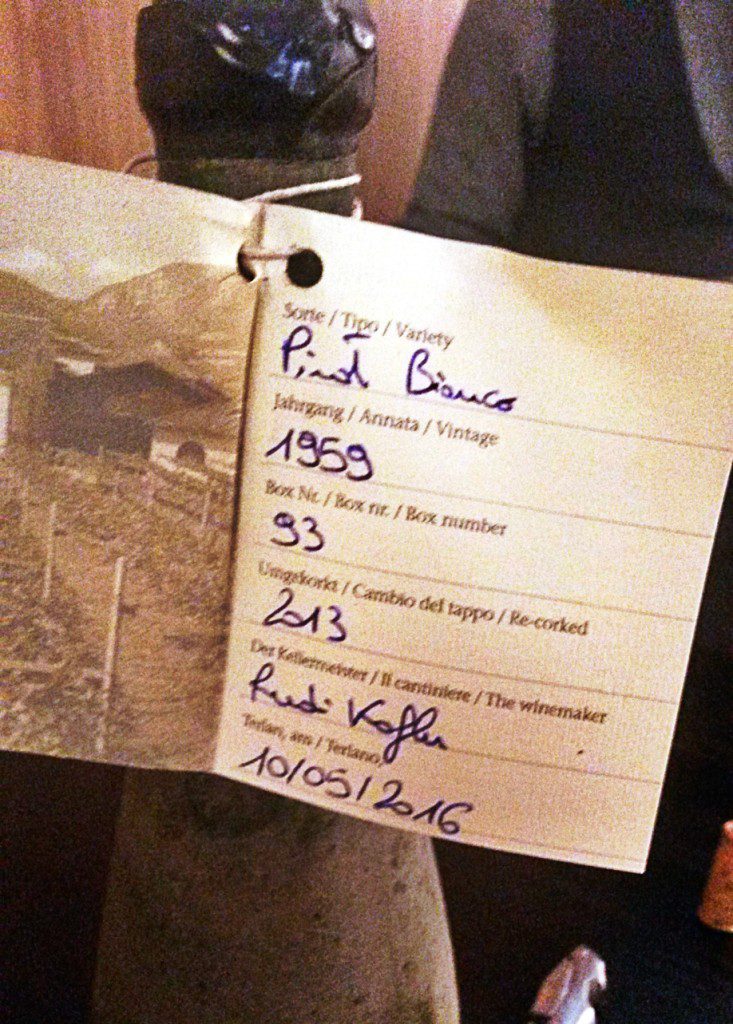 Sorte / Tipo / Variety
Pinot Bianco
Jahrgang / Annata / Vintage
1959
Box Nr. / Box nr. / Box number
93
Umgekorkt / Cambio del tappo / Re-corked
2013
Der Kellermeister / Il cantiniere / The winemaker
Rudi Kofler
Terlan, am / Terlano,
10/05/2016